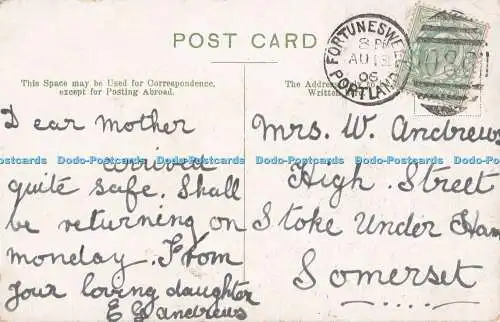 POST CARD
This Space may be Used for Correspondence,
except for Posting Abroad.
Dear mother
arrived
quite safe. Shall
be returning on
monday. From
your loving daughter
E G andrews
FORTUNESWELL
8 PM
AU 13
06
PORTLAND
The Address
Written
Mrs. W. Andrews
High. Street
Stoke Under Ham
Somerset
Dodo-Postcards Dodo-Postcards Dodo-Postcards Dodo-Postcards Dodo-Postcards